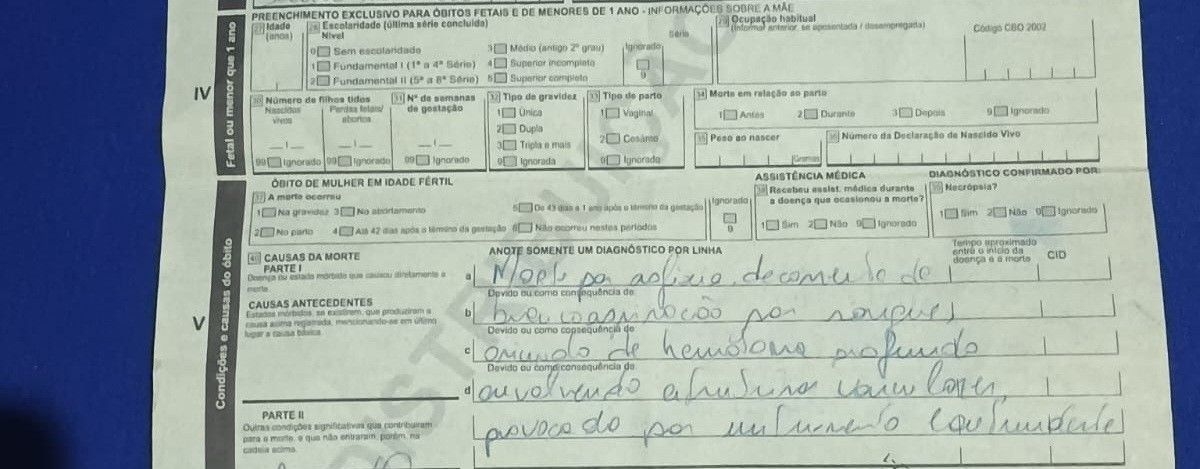 PREENCHIMENTO EXCLUSIVO PARA ÓBITOS FETAIS E DE MENORES DE 1 ANO - INFORMAÇÕES SOBRE A MÃE
IV
Fetal ou menor que 1 ano
27 Idade (anos)
28 Escolaridade (última série concluída)
Nível
Série
0 Sem escolaridade
1 Fundamental I (1ª a 4ª Série)
2 Fundamental II (5ª a 8ª Série)
3 Médio (antigo 2º grau)
4 Superior incompleto
5 Superior completo
Ignorado
9
29 Ocupação habitual
(informar anterior, se aposentada / desempregada)
Código CBO 2002
30 Número de filhos tidos
Nascidos vivos
Perdas fetais/ abortos
99 Ignorado 99 Ignorado
31 Nº de semanas de gestação
99 Ignorado
32 Tipo de gravidez
1 Única
2 Dupla
3 Tripla e mais
9 Ignorada
33 Tipo de parto
1 Vaginal
2 Cesáreo
9 Ignorado
34 Morte em relação ao parto
1 Antes 2 Durante 3 Depois 9 Ignorado
35 Peso ao nascer
Gramas
36 Número da Declaração de Nascido Vivo
V
Condições e causas do óbito
ÓBITO DE MULHER EM IDADE FÉRTIL
37 A morte ocorreu
1 Na gravidez 3 No abortamento 5 De 43 dias a 1 ano após o término da gestação
2 No parto 4 Até 42 dias após o término da gestação 8 Não ocorreu nestes períodos
Ignorado
9
ASSISTÊNCIA MÉDICA
38 Recebeu assist. médica durante
a doença que ocasionou a morte?
1 Sim 2 Não 9 Ignorado
DIAGNÓSTICO CONFIRMADO POR:
39 Necrópsia?
1 Sim 2 Não 9 Ignorado
40 CAUSAS DA MORTE
PARTE I
Doença ou estado mórbido que causou diretamente a
morte.
ANOTE SOMENTE UM DIAGNÓSTICO POR LINHA
Tempo aproximado
entre o início da
doença e a morte
CID
a Morte por asfixia, decorrente de
Devido ou como consequência de:
CAUSAS ANTECEDENTES
Estados mórbidos, se existirem, que produziram a
causa acima registrada, mencionando-se em último
lugar a causa básica.
b broncoaspiração por sangue,
Devido ou como consequência de:
c oriundo de hematoma profundo
Devido ou como consequência de:
d envolvendo estruturas vasculares,
PARTE II
Outras condições significativas que contribuíram
para a morte, e que não entraram, porém, na
cadeia acima.
provocado por instrumento contundente